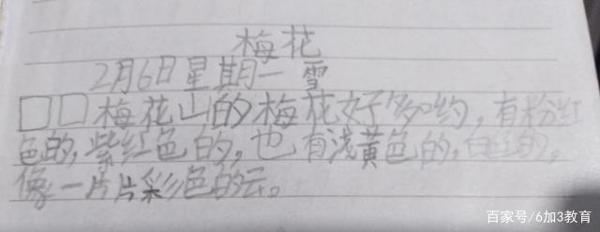 梅花
2月6日星期一 雪
□□梅花山的梅花好多哟，有粉红
色的，紫红色的，也有浅黄色的，白色的，
像一片片彩色的云。
百家号/6加3教育